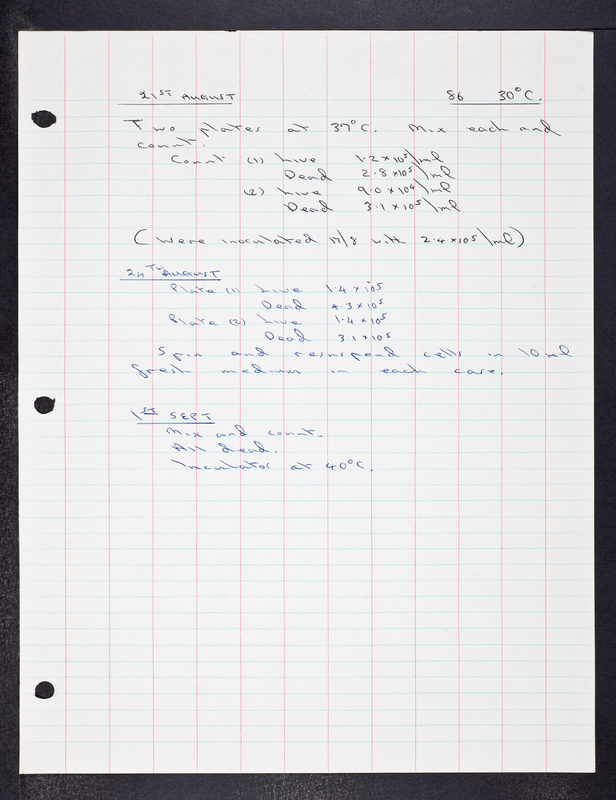 21ST AUGUST 86 30°C.
Two plates at 37°C. Mix each and
count.
Count (1) Live 1.2 x 10⁵/ml
Dead 2.8 x 10⁵/ml
(2) Live 9.0 x 10⁴/ml
Dead 3.1 x 10⁵/ml
(Were inoculated 17/8 with 2.4 x 10⁵/ml)
24TH AUGUST
Plate (1) Live 1.4 x 10⁵
Dead 4.3 x 10⁵
Plate (2) Live 1.4 x 10⁵
Dead 3.1 x 10⁵
Spin and resuspend cells in 10 ml
fresh medium in each case.
1ST SEPT
Mix and count.
All dead.
Incubator at 40°C.